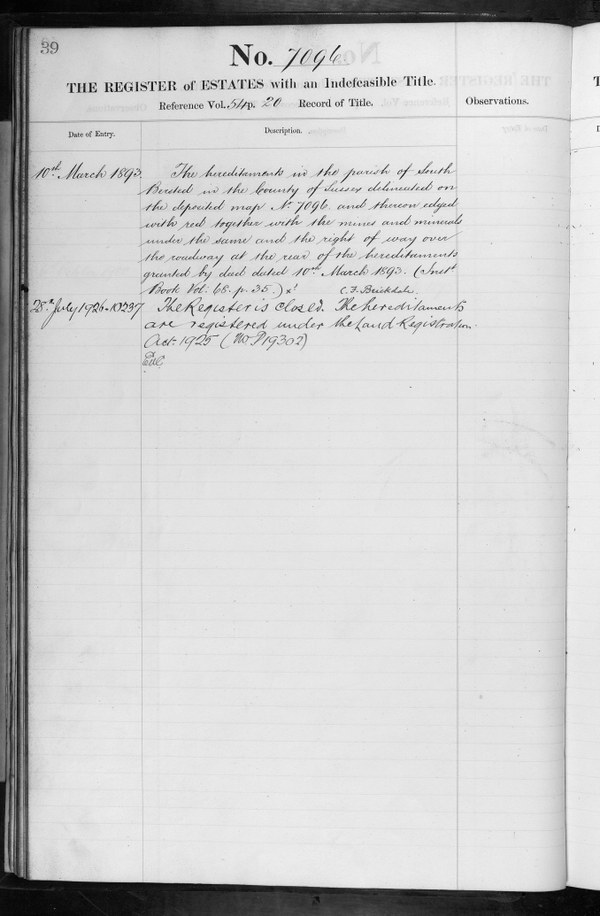 39
No. 7096
THE REGISTER of ESTATES with an Indefeasible Title.
Reference Vol. 54 p. 20 Record of Title.
Observations.
Date of Entry.
Description.
10th March 1893.
The hereditaments in the parish of South
Bersted in the County of Sussex delineated on
the deposited map No. 7096. and thereon edged
with red together with the mines and minerals
under the same and the right of way over
the roadway at the rear of the hereditaments
granted by deed dated 10th March 1893. (Instt
Book Vol: 68. p. 35.)
C. F. Brickdale.
28th July, 1926
The Register is closed. The hereditaments
are registered under the Land Registration
Act. 1925 (No P19302)